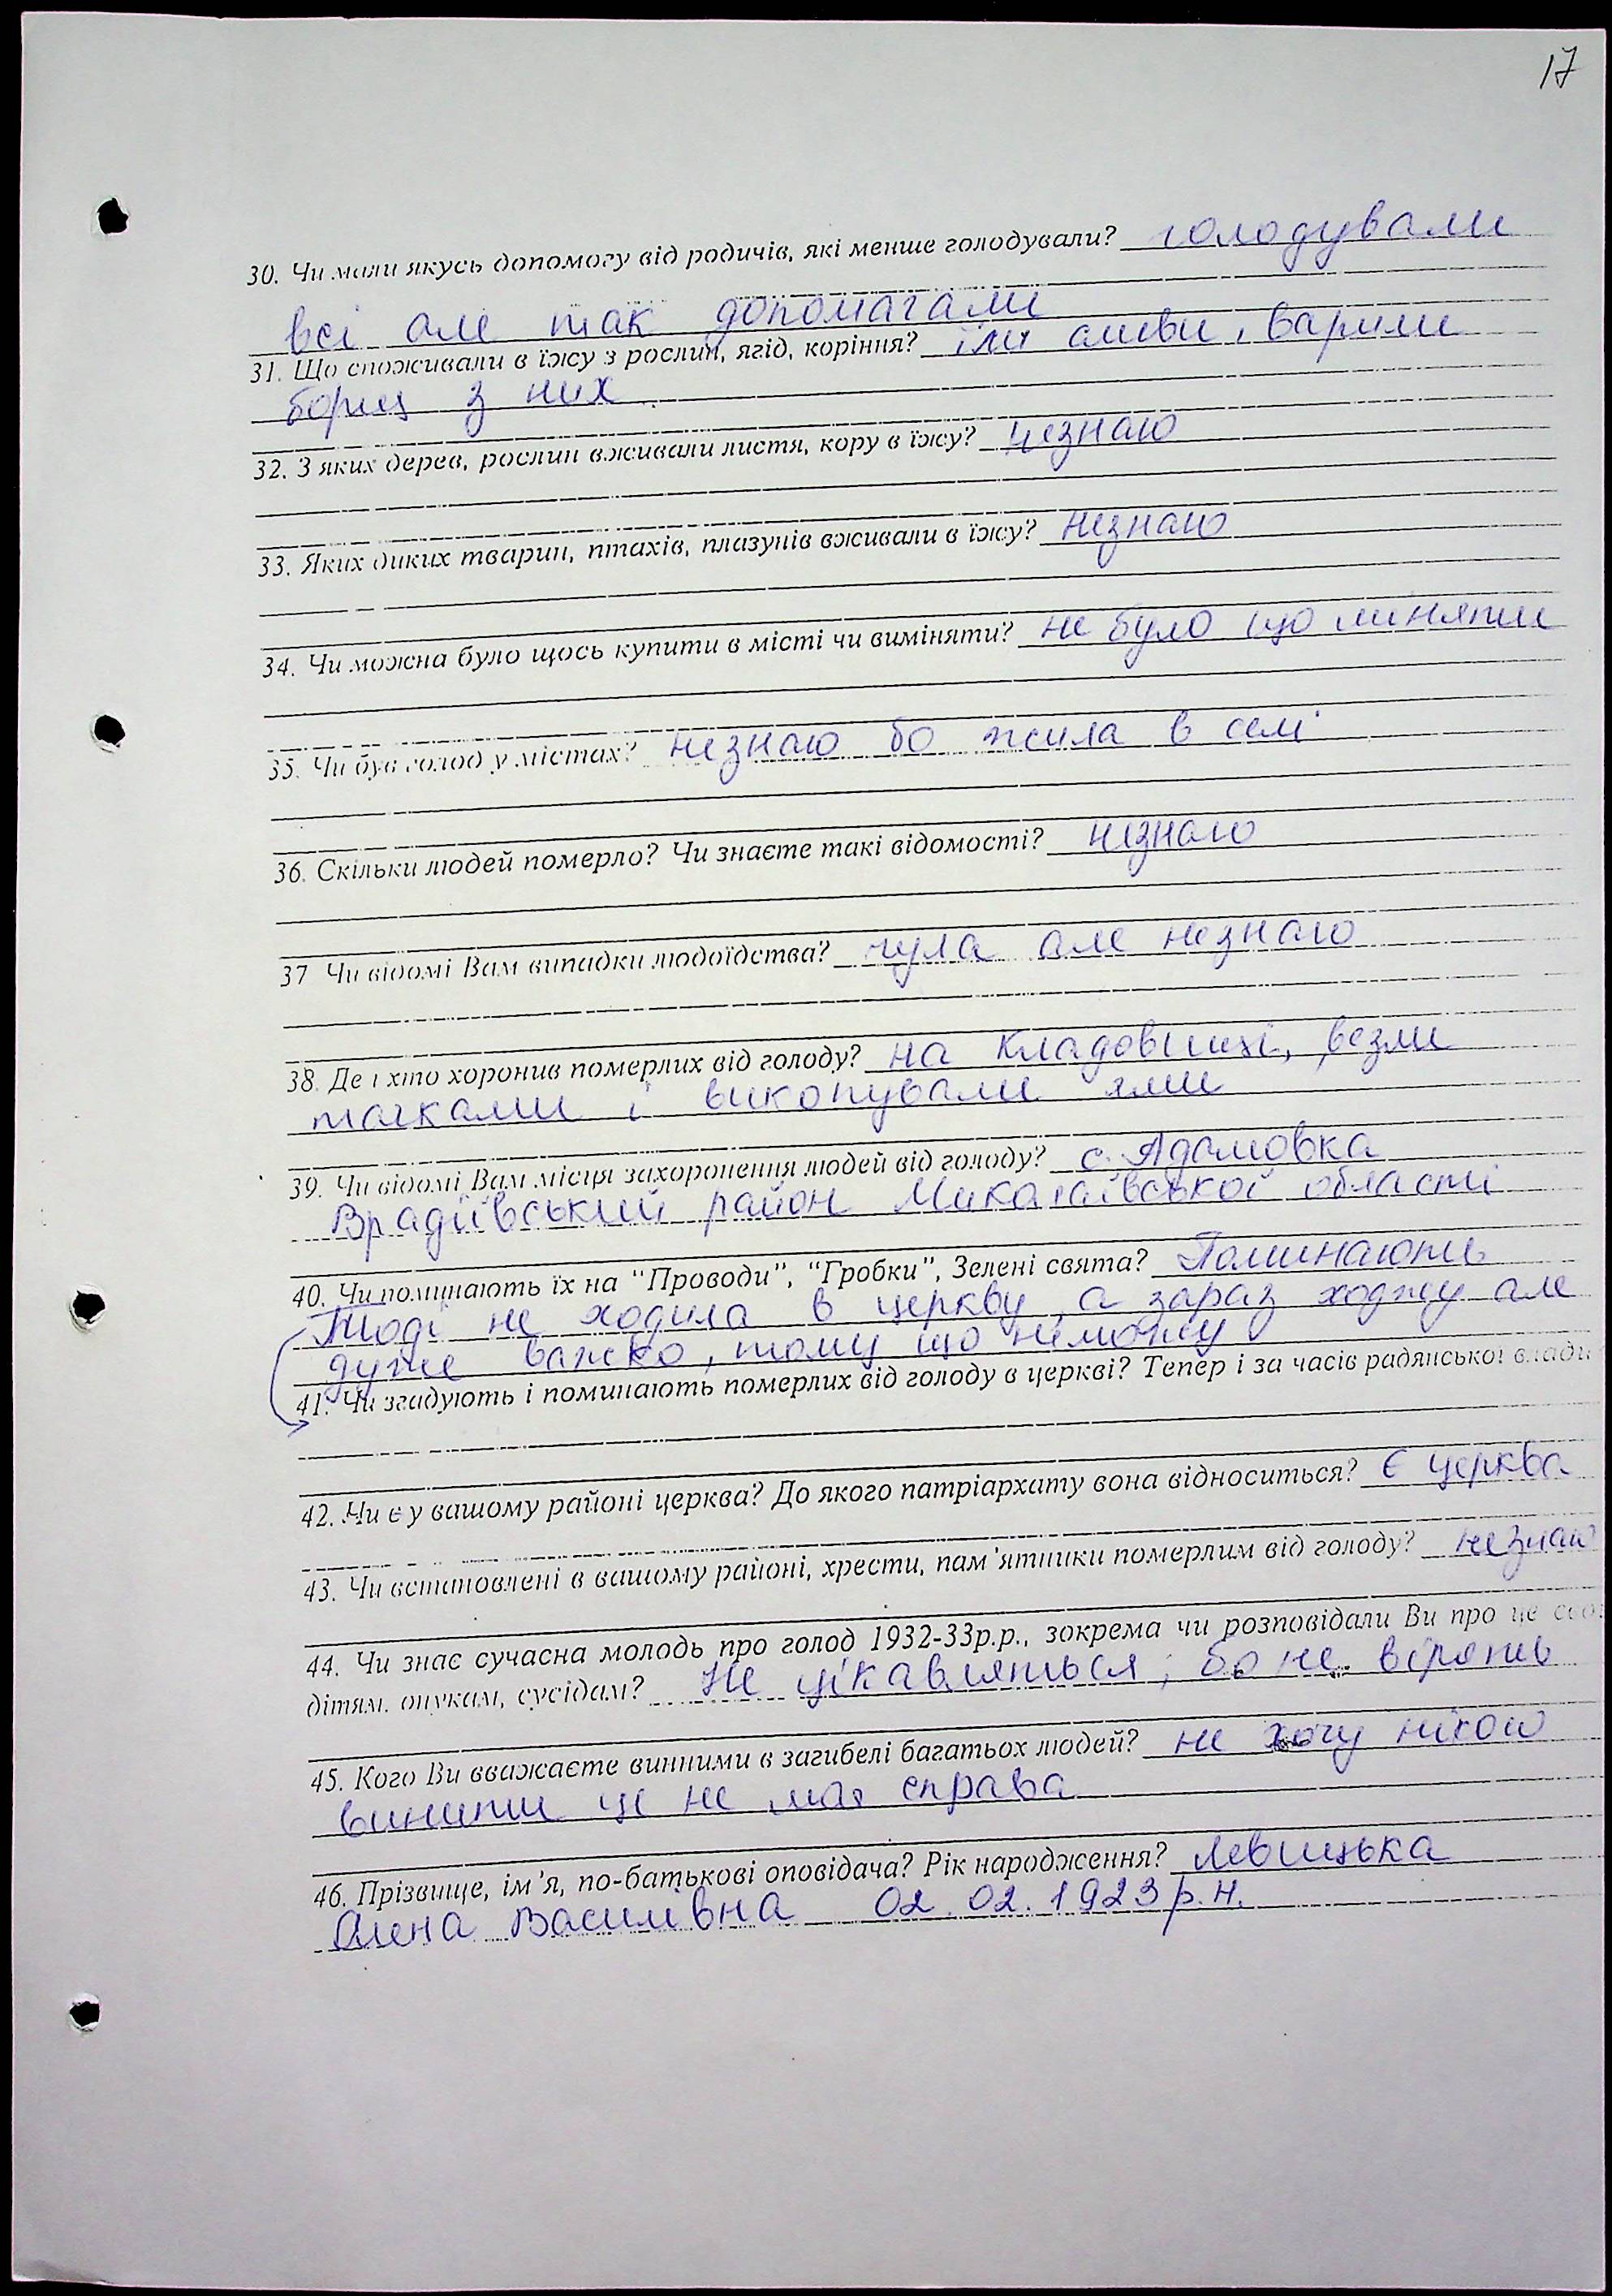 17
30. Чи мали якусь допомогу від родичів, які менше голодували? голодували
всі але так допомагали
31. Що споживали в їжу з рослин, ягід, коріння? їли сливи, варили
борщ з них
32. З яких дерев, рослин вживали листя, кору в їжу? незнаю
33. Яких диких тварин, птахів, плазунів вживали в їжу? незнаю
34. Чи можна було щось купити в місті чи виміняти? не було що міняти
35. Чи був голод у містах? незнаю бо жила в селі
36. Скільки людей померло? Чи знаєте такі відомості? незнаю
37 Чи відомі Вам випадки людоїдства? чула але незнаю
38. Де і хто хоронив померлих від голоду? на кладовищі, везли
тачками і викопували ями
39. Чи відомі Вам місця захоронення людей від голоду? с. Адамовка
Врадіївський район Миколаївської області
40. Чи поминають їх на "Проводи", "Гробки", Зелені свята? Поминають
Тоді не ходила в церкву, а зараз ходжу але
дуже важко, тому що неможу
41. Чи згадують і поминають померлих від голоду в церкві? Тепер і за часів радянської влади
42. Чи є у вашому районі церква? До якого патріархату вона відноситься? є церква
43. Чи встановлені в вашому районі, хрести, пам'ятники померлим від голоду? незнаю
44. Чи знає сучасна молодь про голод 1932-33р.р., зокрема чи розповідали Ви про це
дітям, онукам, сусідам? не цікавляться, бо не вірять
45. Кого Ви вважаєте винними в загибелі багатьох людей? не хочу нікого
винити це не моя справа
46. Прізвище, ім'я, по-батькові оповідача? Рік народження? Левицька
Олена Василівна 02.02.1923 р.н.